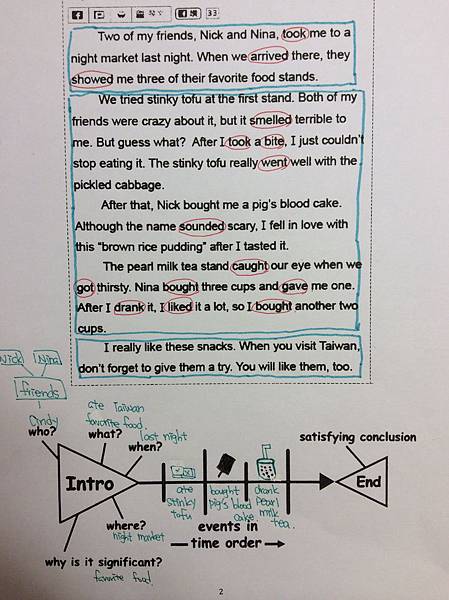 33
Two of my friends, Nick and Nina, took me to a
night market last night. When we arrived there, they
showed me three of their favorite food stands.
We tried stinky tofu at the first stand. Both of my
friends were crazy about it, but it smelled terrible to
me. But guess what? After I took a bite, I just couldn't
stop eating it. The stinky tofu really went well with the
pickled cabbage.
After that, Nick bought me a pig's blood cake.
Although the name sounded scary, I fell in love with
this "brown rice pudding" after I tasted it.
The pearl milk tea stand caught our eye when we
got thirsty. Nina bought three cups and gave me one.
After I drank it, I liked it a lot, so I bought another two
cups.
I really like these snacks. When you visit Taiwan,
don't forget to give them a try. You will like them, too.
Nick Nina
friends
Cindy
who?
ate Taiwan
favorite food.
what?
last night
when?
satisfying conclusion
Intro
ate
stinky
tofu
bought
pig's blood
cake.
drank
pearl
milk
tea.
End
where?
night market
events in
time order
why is it significant?
favorite food
2